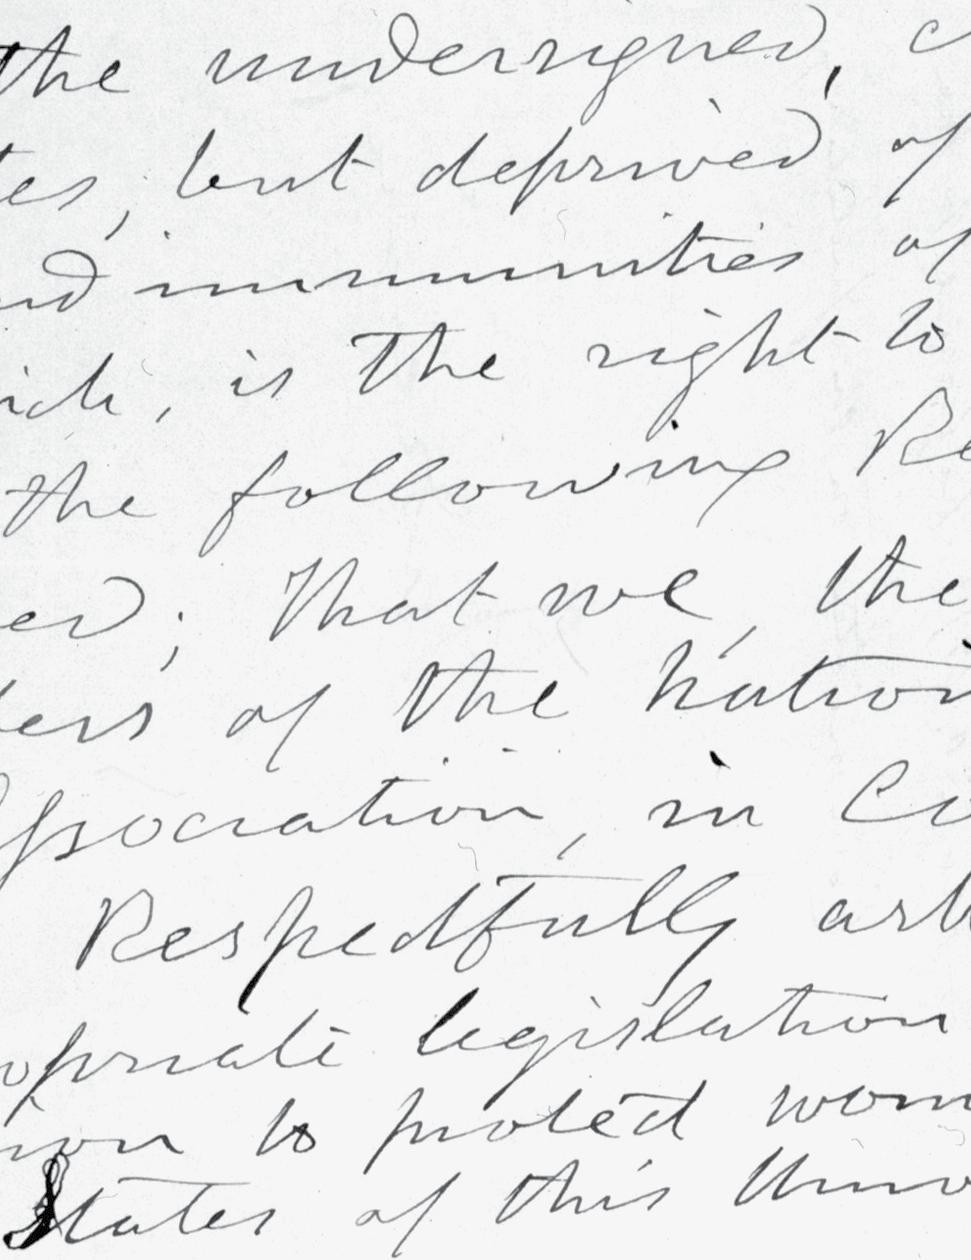 the undersigned, c
tes, but deprived of
nd immunities of
ich, is the right to
the following Re
ed; That we, the
bers of the Nation
Association, in Co
Respectfully ask
opriate legislation
ion to protect wom
States of this Unio